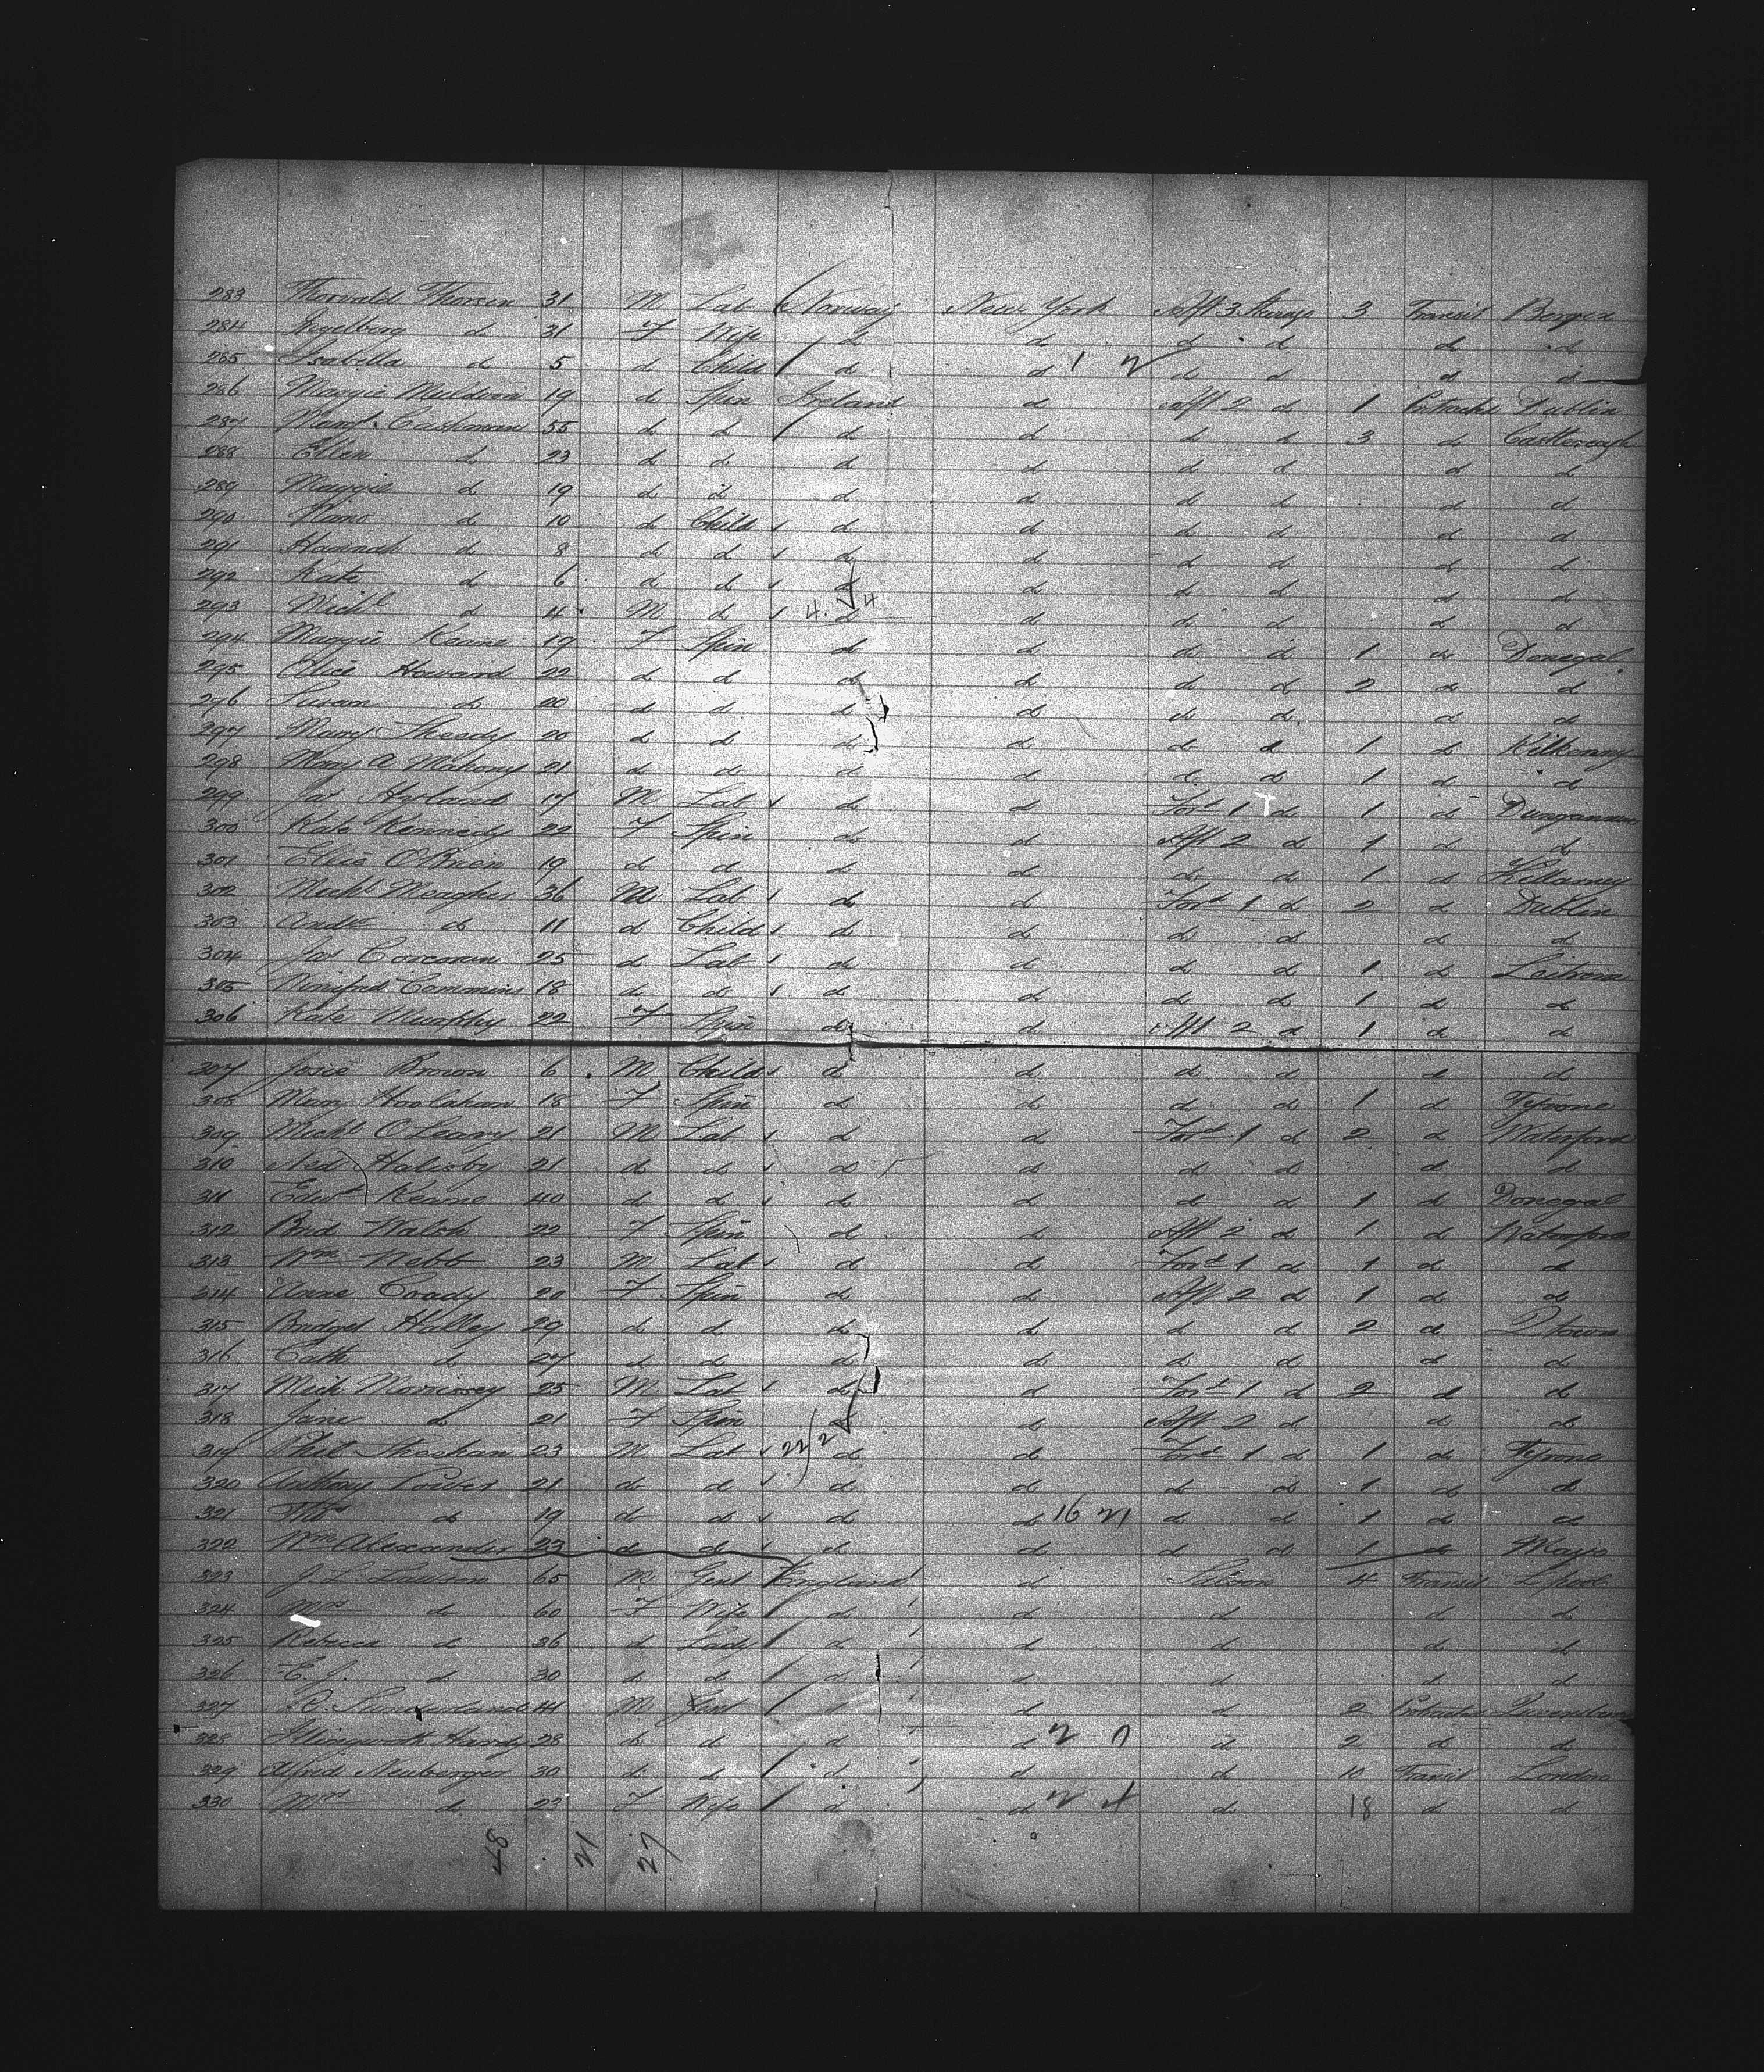 283 Thorvald Thorsen 31 M Lab Norway New York Aft 3 Steerage 3 Transit Bergen
284 Ingelborg d 31 F Wife d d d d d d
285 Isabella d 5 d Child d d 1 2 d d d d
286 Maggie Muldoon 19 d Spin Ireland d Aft 2 d 1 Protracted Dublin
287 Margt Cashman 55 d d d d d d 3 d Castlereagh
288 Ellen d 23 d d d d d d d d
289 Maggie d 19 d d d d d d d d
290 Nano d 10 d Child d d d d d d
291 Hannah d 8 d d d d d d d d
292 Kate d 6 d d d d d d d d
293 Michl d 4 M d 4. d 4 d d d d
294 Maggie Keane 19 F Spin d d d d 1 d Donegal
295 Alice Howard 22 d d d d d d 2 d d
296 Susan d 20 d d d d d d d d
297 Mary Sheedy 20 d d d d d d 1 d Kilkenny
298 Mary A Mahony 21 d d d d d d 1 d d
299 Jas Hyland 17 M Lab d d Ford 1 d 1 d Dungannon
300 Kate Kennedy 22 F Spin d d Aft 2 d 1 d d
301 Eliza O'Brien 19 d d d d d d 1 d Killarney
302 Michl Meagher 36 M Lab d d Ford 1 d 2 d Dublin
303 Andw d 11 d Child d d d d d d
304 Jas Corcoran 25 d Lab d d d d 1 d Leitrim
305 Winifred Commins 18 d d d d d d 1 d d
306 Kate Murphy 22 F Spin d d Aft 2 d 1 d d
307 Josie Brown 6 M Child d d d d d d
308 Mary Hoolahan 18 F Spin d d d d 1 d Tyrone
309 Michl O'Leary 21 M Lab d d Ford 1 d 2 d Waterford
310 Ned 21 d d d d d d d d
311 Edwd Keane 40 d d d d d d 1 d Donegal
312 Brid Walsh 22 F Spin d d Aft 2 d 1 d Waterford
313 Wm Webb 23 M Lab d d Ford 1 d 1 d d
314 Anne Coady 20 F Spin d d Aft 2 d 1 d d
315 Bridget Halley 29 d d d d d d 2 d Qtown
316 Cath d 27 d d d d d d d d
317 Mich Morrissey 25 M Lab d d Ford 1 d 2 d d
318 Jane d 21 F Spin d d Aft 2 d d d
319 Phil Sheehan 23 M Lab 22/2 d d Ford 1 d 1 d Tyrone
320 Anthony Power 21 d d d d d d 1 d d
321 d 19 d d d d 16 21 d d 1 d d
322 Wm Alexander 23 d d d d d d 1 d Mayo
323 J. L. Lawson 65 M Gent England d Saloon 4 Transit Lpool
324 Mrs d 60 F Wife d d d d d
325 Rebecca d 36 d Lady d d d d d
326 E. J. d 30 d d d d d d d
327 R. Sunderland 41 M Gent d d d 2 Protracted
328 Illingworth Hardy 28 d d d d 2 0 d 2 d d
329 Alfred Neuberger 30 d d d d d 10 Transit London
330 Mrs d 27 F Wife d d 2 d 18 d d
48 21 27